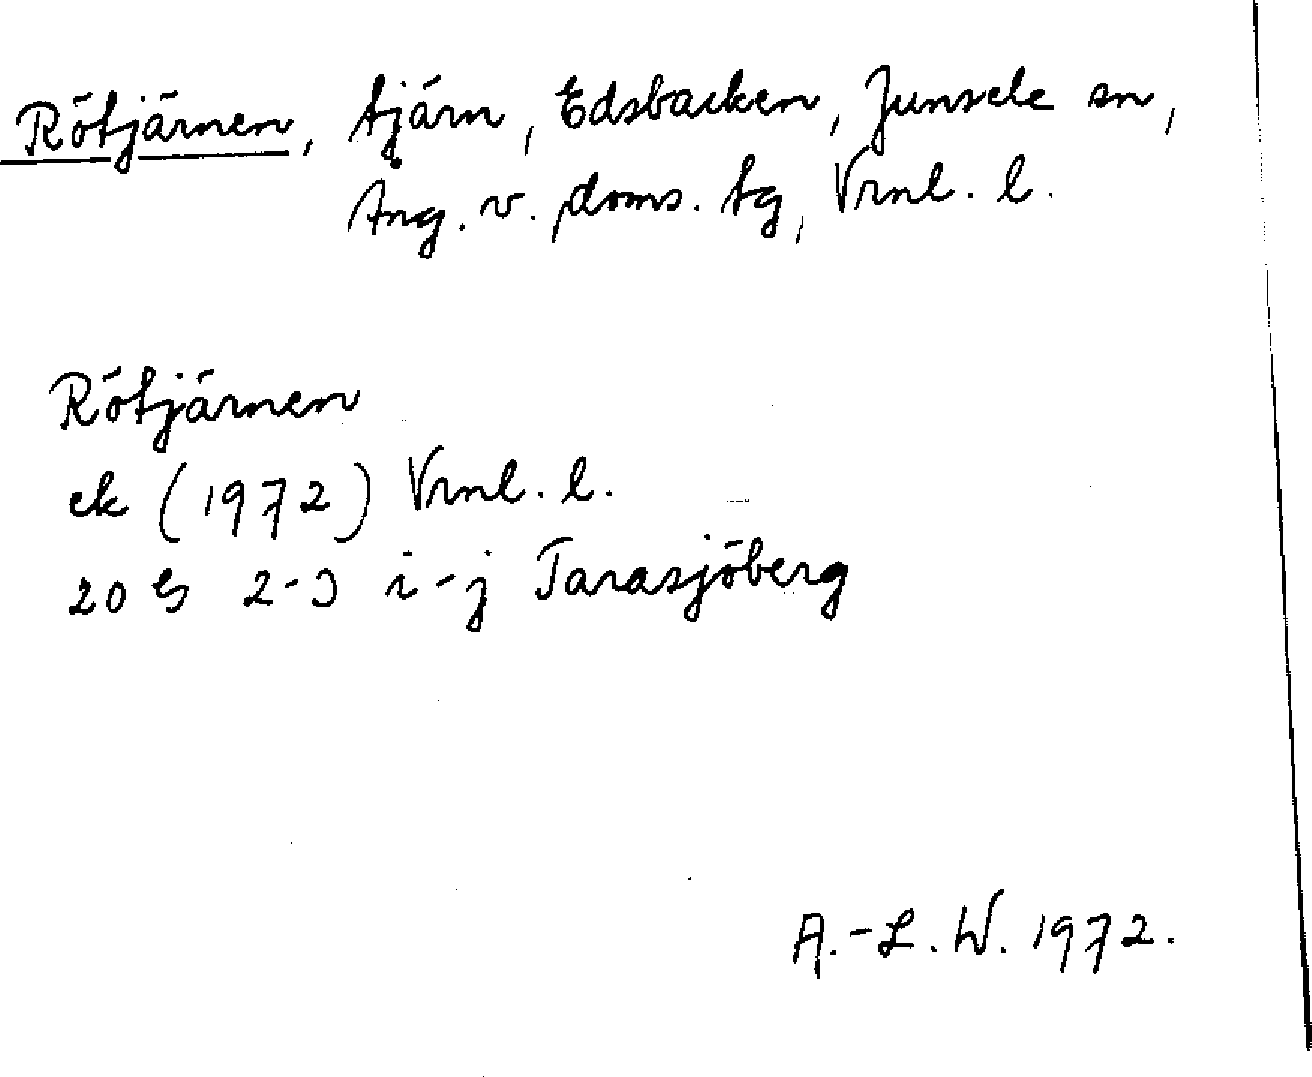 Rötjärnen, tjärn, Edsbacken, Junsele sn,
Ång. v. doms. tg, Vrnl. l.
Rötjärnen
ek (1972) Vrnl. l.
20 G 2-3 i-j Tarasjöberg
A.-L. W. 1972.